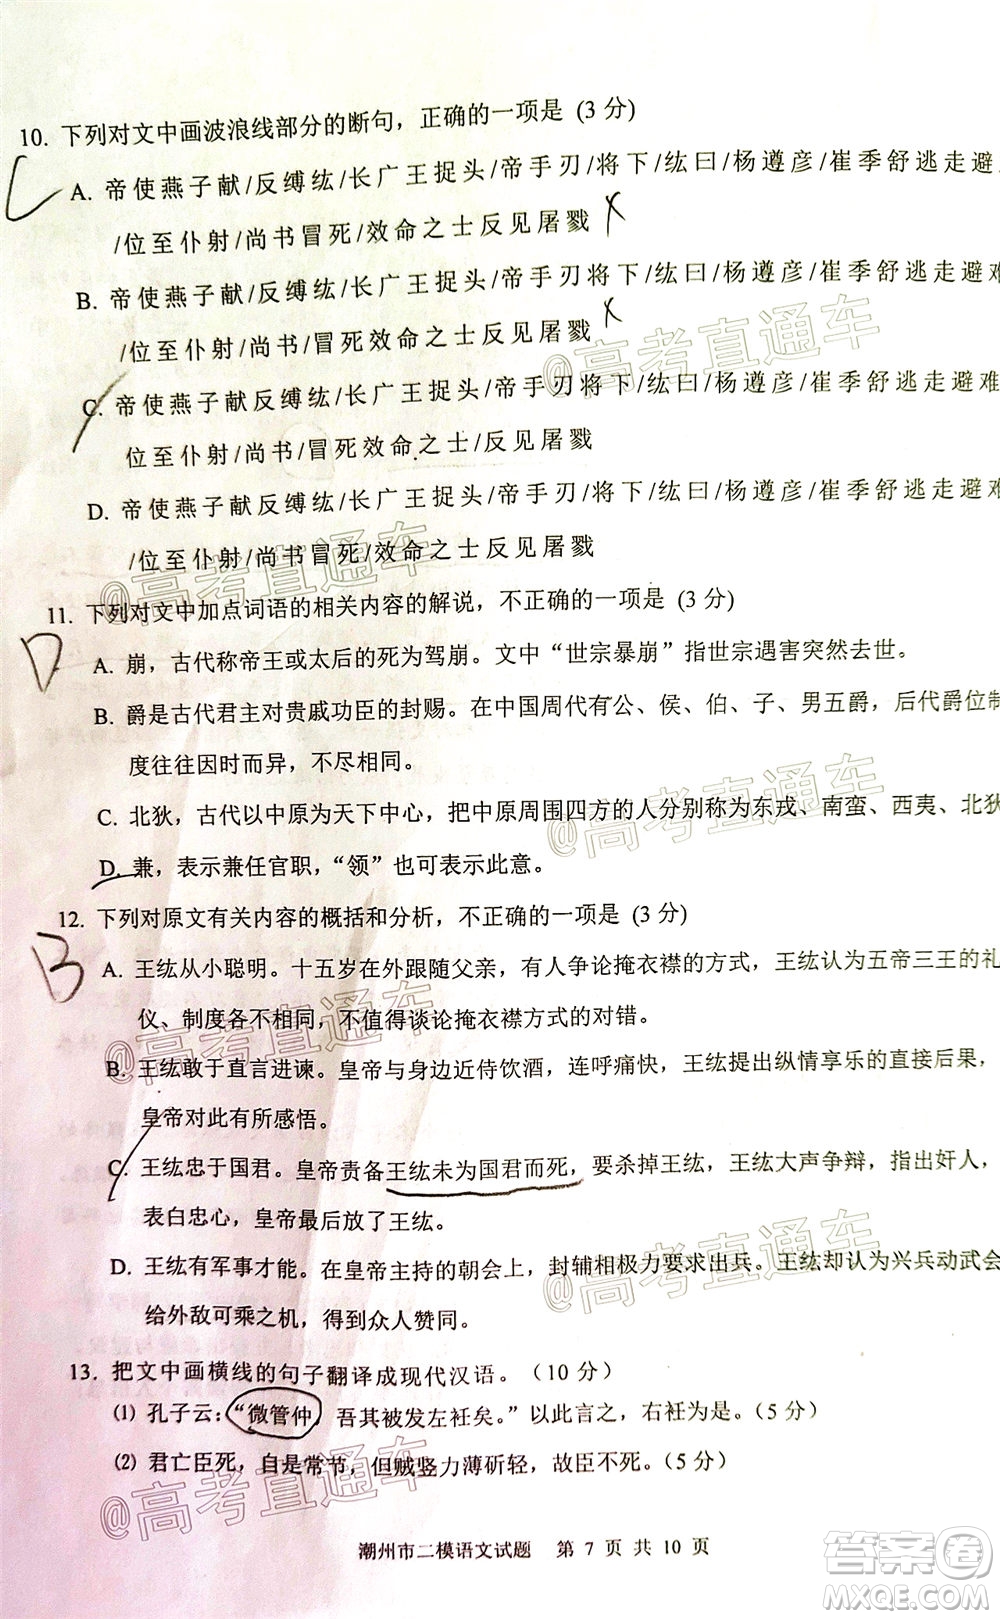 10. 下列对文中画波浪线部分的断句，正确的一项是 (3 分)
A. 帝使燕子献/反缚纮/长广王捉头/帝手刃/将下/纮曰/杨遵彦/崔季舒逃走避
/位至仆射/尚书冒死/效命之士反见屠戮
B. 帝使燕子献/反缚纮/长广王捉头/帝手刃将下/纮曰/杨遵彦/崔季舒逃走避难
/位至仆射/尚书/冒死效命之士反见屠戮
C. 帝使燕子献反缚纮/长广王捉头/帝手刃将下/纮曰/杨遵彦/崔季舒逃走避难
位至仆射/尚书/冒死效命之士/反见屠戮
D. 帝使燕子献反缚纮/长广王捉头/帝手刃/将下/纮曰/杨遵彦/崔季舒逃走避难
/位至仆射/尚书冒死/效命之士/反见屠戮
C
11. 下列对文中加点词语的相关内容的解说，不正确的一项是 (3 分)
D
A. 崩，古代称帝王或太后的死为驾崩。文中“世宗暴崩”指世宗遇害突然去世。
B. 爵是古代君主对贵戚功臣的封赐。在中国周代有公、侯、伯、子、男五爵，后代爵位制
度往往因时而异，不尽相同。
C. 北狄，古代以中原为天下中心，把中原周围四方的人分别称为东戎、南蛮、西夷、北狄
D. 兼，表示兼任官职，“领”也可表示此意。
12. 下列对原文有关内容的概括和分析，不正确的一项是 (3 分)
B
A. 王纮从小聪明。十五岁在外跟随父亲，有人争论掩衣襟的方式，王纮认为五帝三王的礼
仪、制度各不相同，不值得谈论掩衣襟方式的对错。
B. 王纮敢于直言进谏。皇帝与身边近侍饮酒，连呼痛快，王纮提出纵情享乐的直接后果，
皇帝对此有所感悟。
C. 王纮忠于国君。皇帝责备王纮未为国君而死，要杀掉王纮，王纮大声争辩，指出奸人，
表白忠心，皇帝最后放了王纮。
D. 王纮有军事才能。在皇帝主持的朝会上，封辅相极力要求出兵。王纮却认为兴兵动武会
给外敌可乘之机，得到众人赞同。
13. 把文中画横线的句子翻译成现代汉语。（10 分）
⑴ 孔子云：“微管仲，吾其被发左衽矣。”以此言之，右衽为是。（5 分）
⑵ 君亡臣死，自是常节，但贼竖力薄斫轻，故臣不死。（5 分）
潮州市二模语文试题 第 7 页 共 10 页
@高考直通车
@高考直通车
@高考直通车
@高考直通车
@高考直通车
@高考直通车
答案圈
MXQE.COM